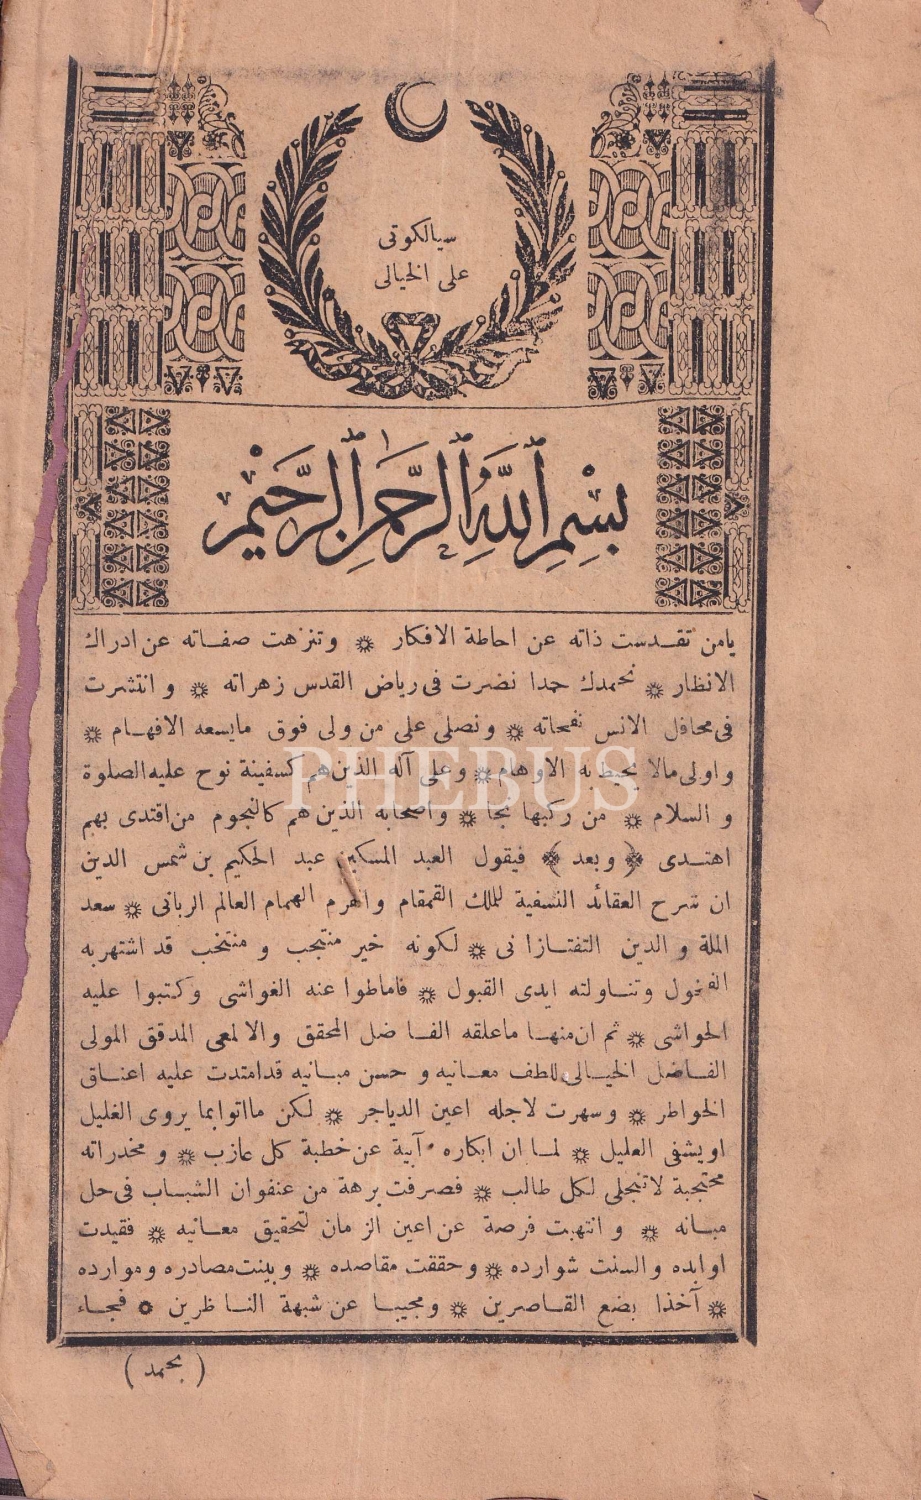 سيالكوتى
على الخيالى
بسم الله الرحمن الرحيم
يامن تقدست ذاته عن احاطة الافكار ❋ وتنزهت صفاته عن ادراك
الانظار ❋ نحمدك حمدا نضرت فى رياض القدس زهراته ❋ و انتشرت
فى محافل الانس نفحاته ❋ ونصلى على من ولى فوق مايسعه الافهام ❋
واولى مالا يحيط به الاوهام ❋ وعلى آله الذين هم كسفينة نوح عليه الصلوة
و السلام ❋ من ركبها نجا ❋ واصحابه الذين هم كالنجوم من اقتدى بهم
اهتدى ﴿ وبعد ﴾ فيقول العبد المسكين عبد الحكيم بن شمس الدين
ان شرح العقائد النسفية للملك القمقام والقرم الهمام العالم الربانى ❋ سعد
الملة و الدين التفتازا نى ❋ لكونه خير منتجب و منتخب قد اشتهر به
الفحول وتناولته ايدى القبول ❋ فاماطوا عنه الغواشى وكتبوا عليه
الحواشى ❋ ثم ان منها ماعلقه الفا ضل المحقق والالمعى المدقق المولى
الفاضل الخيالى للطف معانيه و حسن مبانيه قدامتدت عليه اعناق
الخواطر ❋ وسهرت لاجله اعين الدياجر ❋ لكن مااتوابما يروى الغليل
اويشفى العليل ❋ لما ان ابكاره آبية عن خطبة كل عازب ❋ و مخدراته
محتجبة لاتنجلى لكل طالب ❋ فصرفت برهة من عنفوان الشباب فى حل
مبانه ❋ و انتهبت فرصة عن اعين الزمان لتحقيق معانيه ❋ فقيدت
اوابده والسنت شوارده ❋ وحققت مقاصده ❋ وبينت مصادره وموارده
❋ آخذا بضع القاصرين ❋ ومجيبا عن شبهة الناظرين ❋ فجاء
( بحمد )
PHEBUS